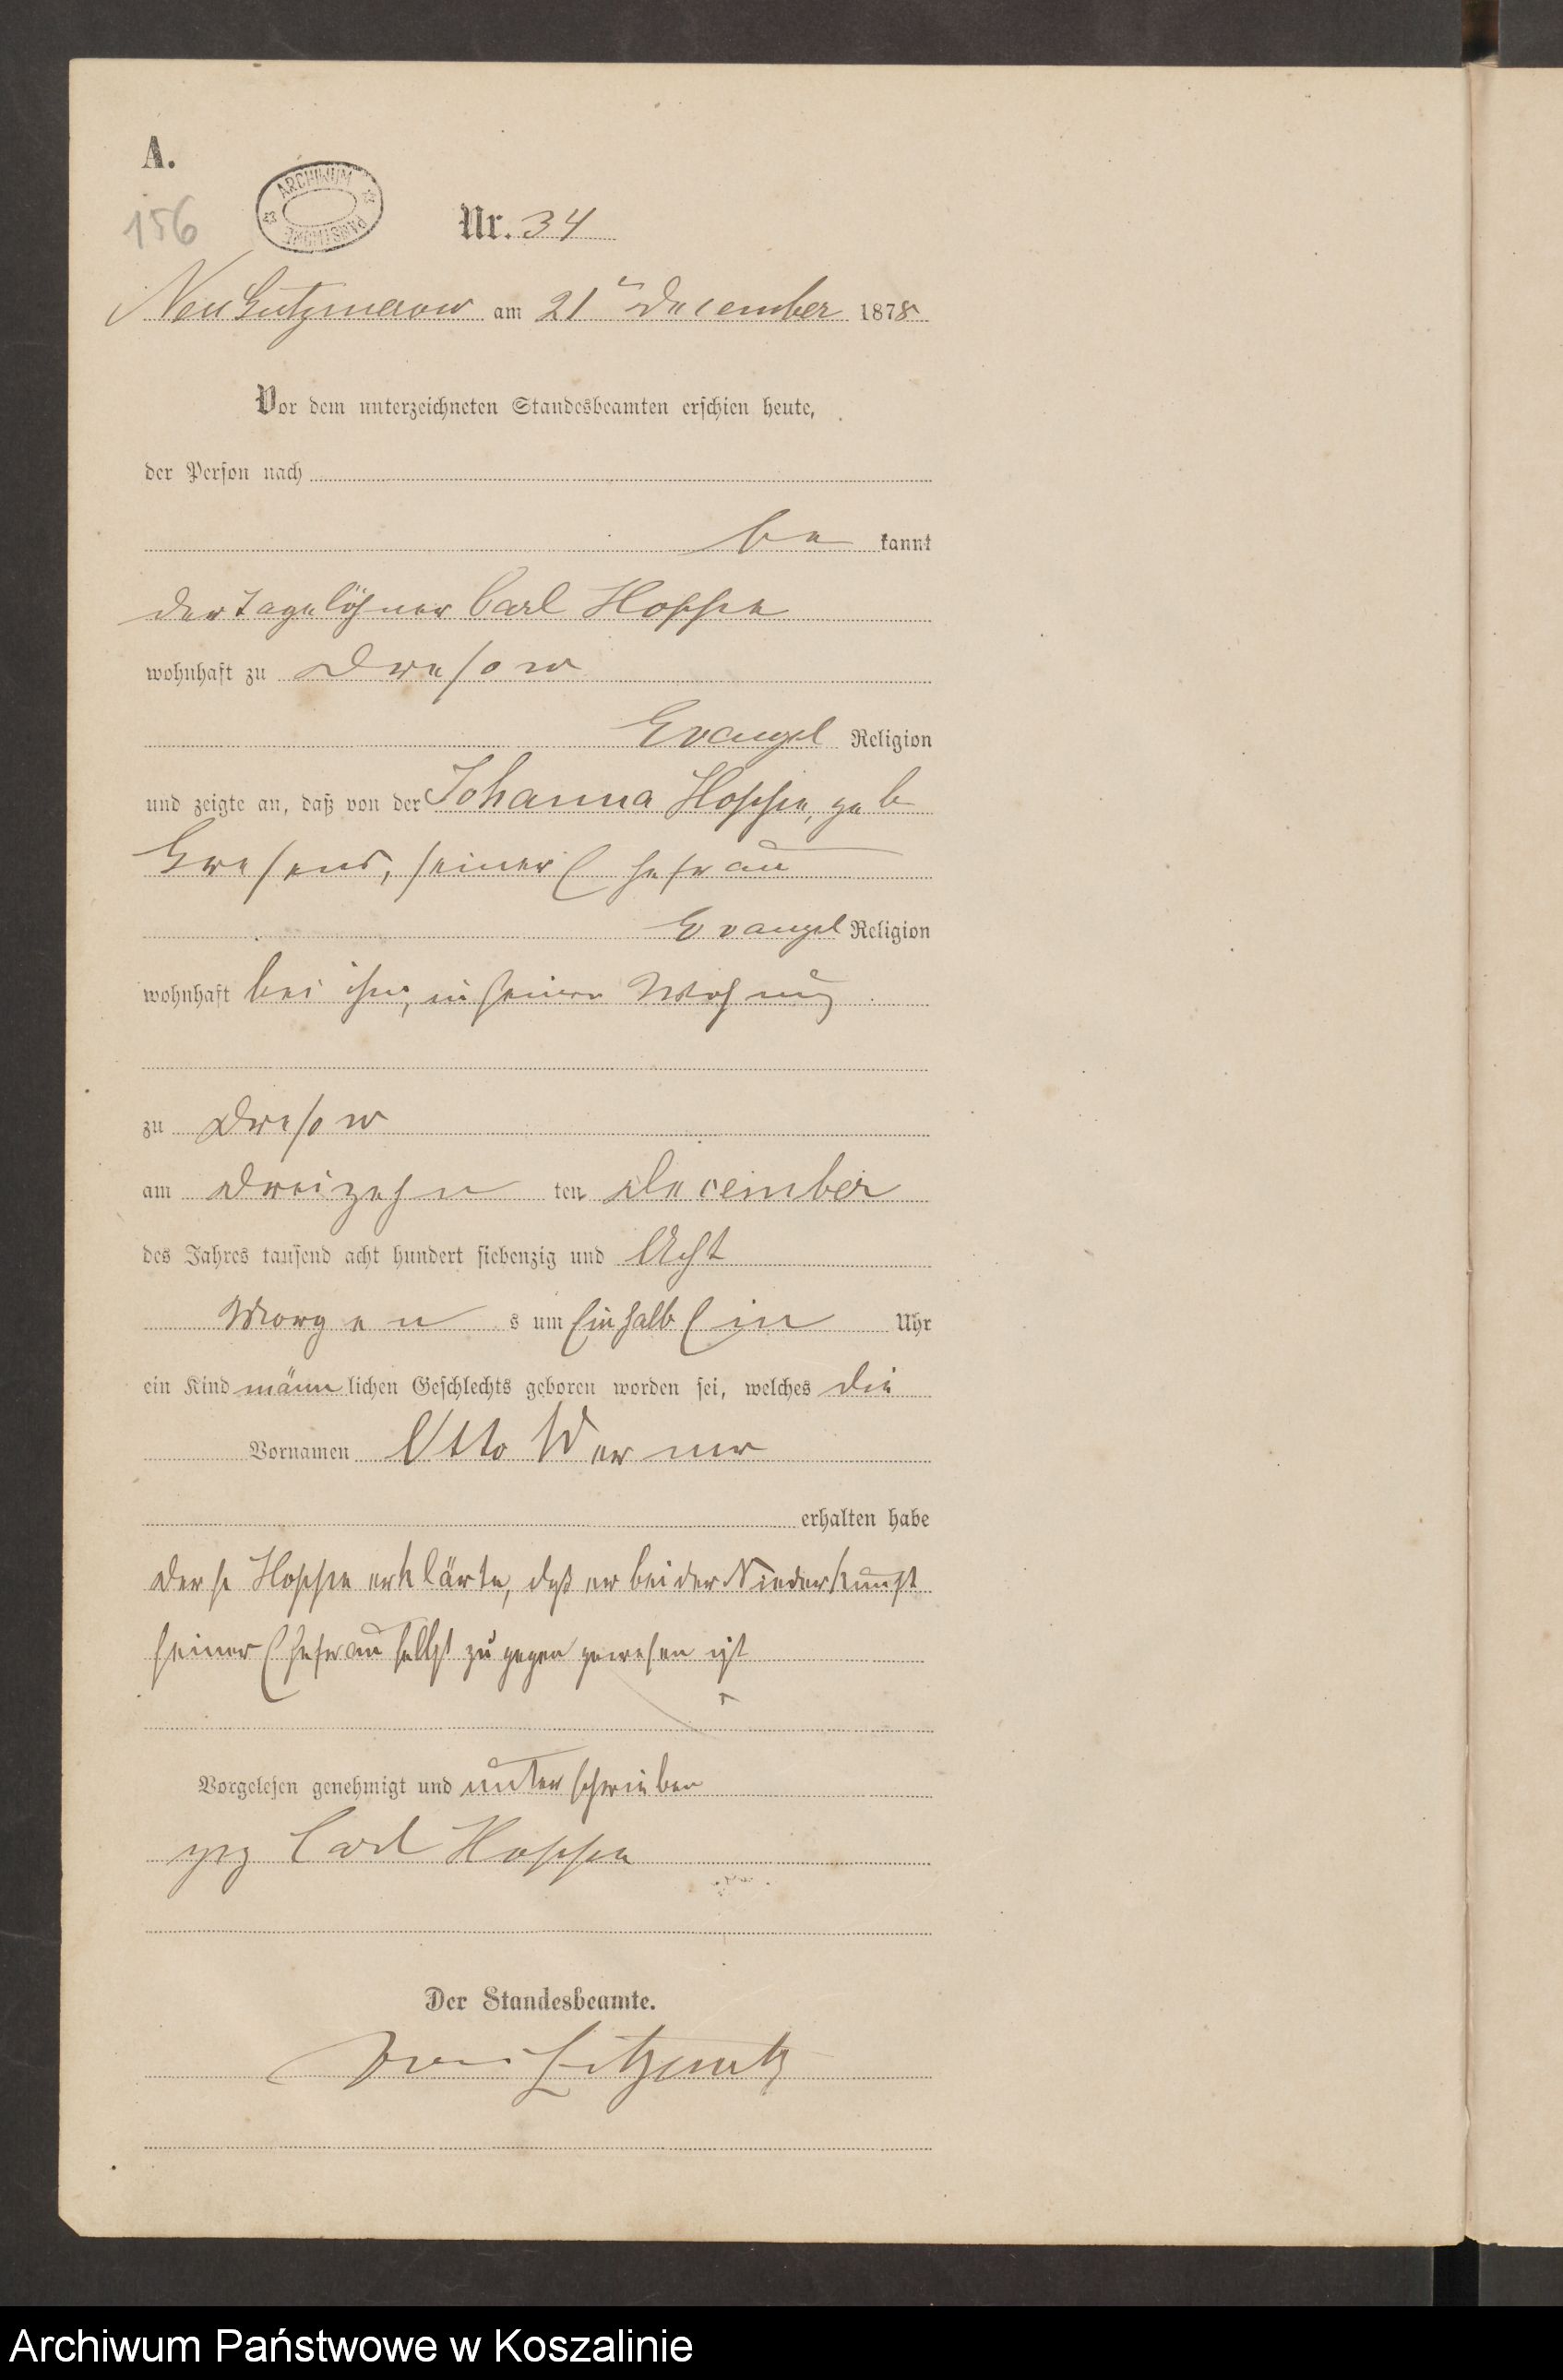 A.
156
ARCHIWUM PAŃSTWOWE
Nr. 34
Neu Gutzmerow am 21n December 1878
Vor dem unterzeichneten Standesbeamten erschien heute,
der Person nach
be kannt
der Tagelöhner Carl Hoppe
wohnhaft zu Dresow
Evangel Religion
und zeigte an, daß von der Johanna Hoppe, geb
seiner Ehefrau
Evangel Religion
wohnhaft bei ihm, in seiner Wohnung
zu Dresow
am Dreizehn ten December
des Jahres tausend acht hundert siebenzig und Acht
Morgen s um Einhalb Ein Uhr
ein Kind männ lichen Geschlechts geboren worden sei, welches die
Vornamen Otto Werner
erhalten habe
Der p Hoppe erklärte, daß er bei der Niederkunft
seiner Ehefrau selbst zu gegen gewesen ist
Vorgelesen genehmigt und unterschrieben
gez Carl Hoppe
Der Standesbeamte.
Archiwum Państwowe w Koszalinie